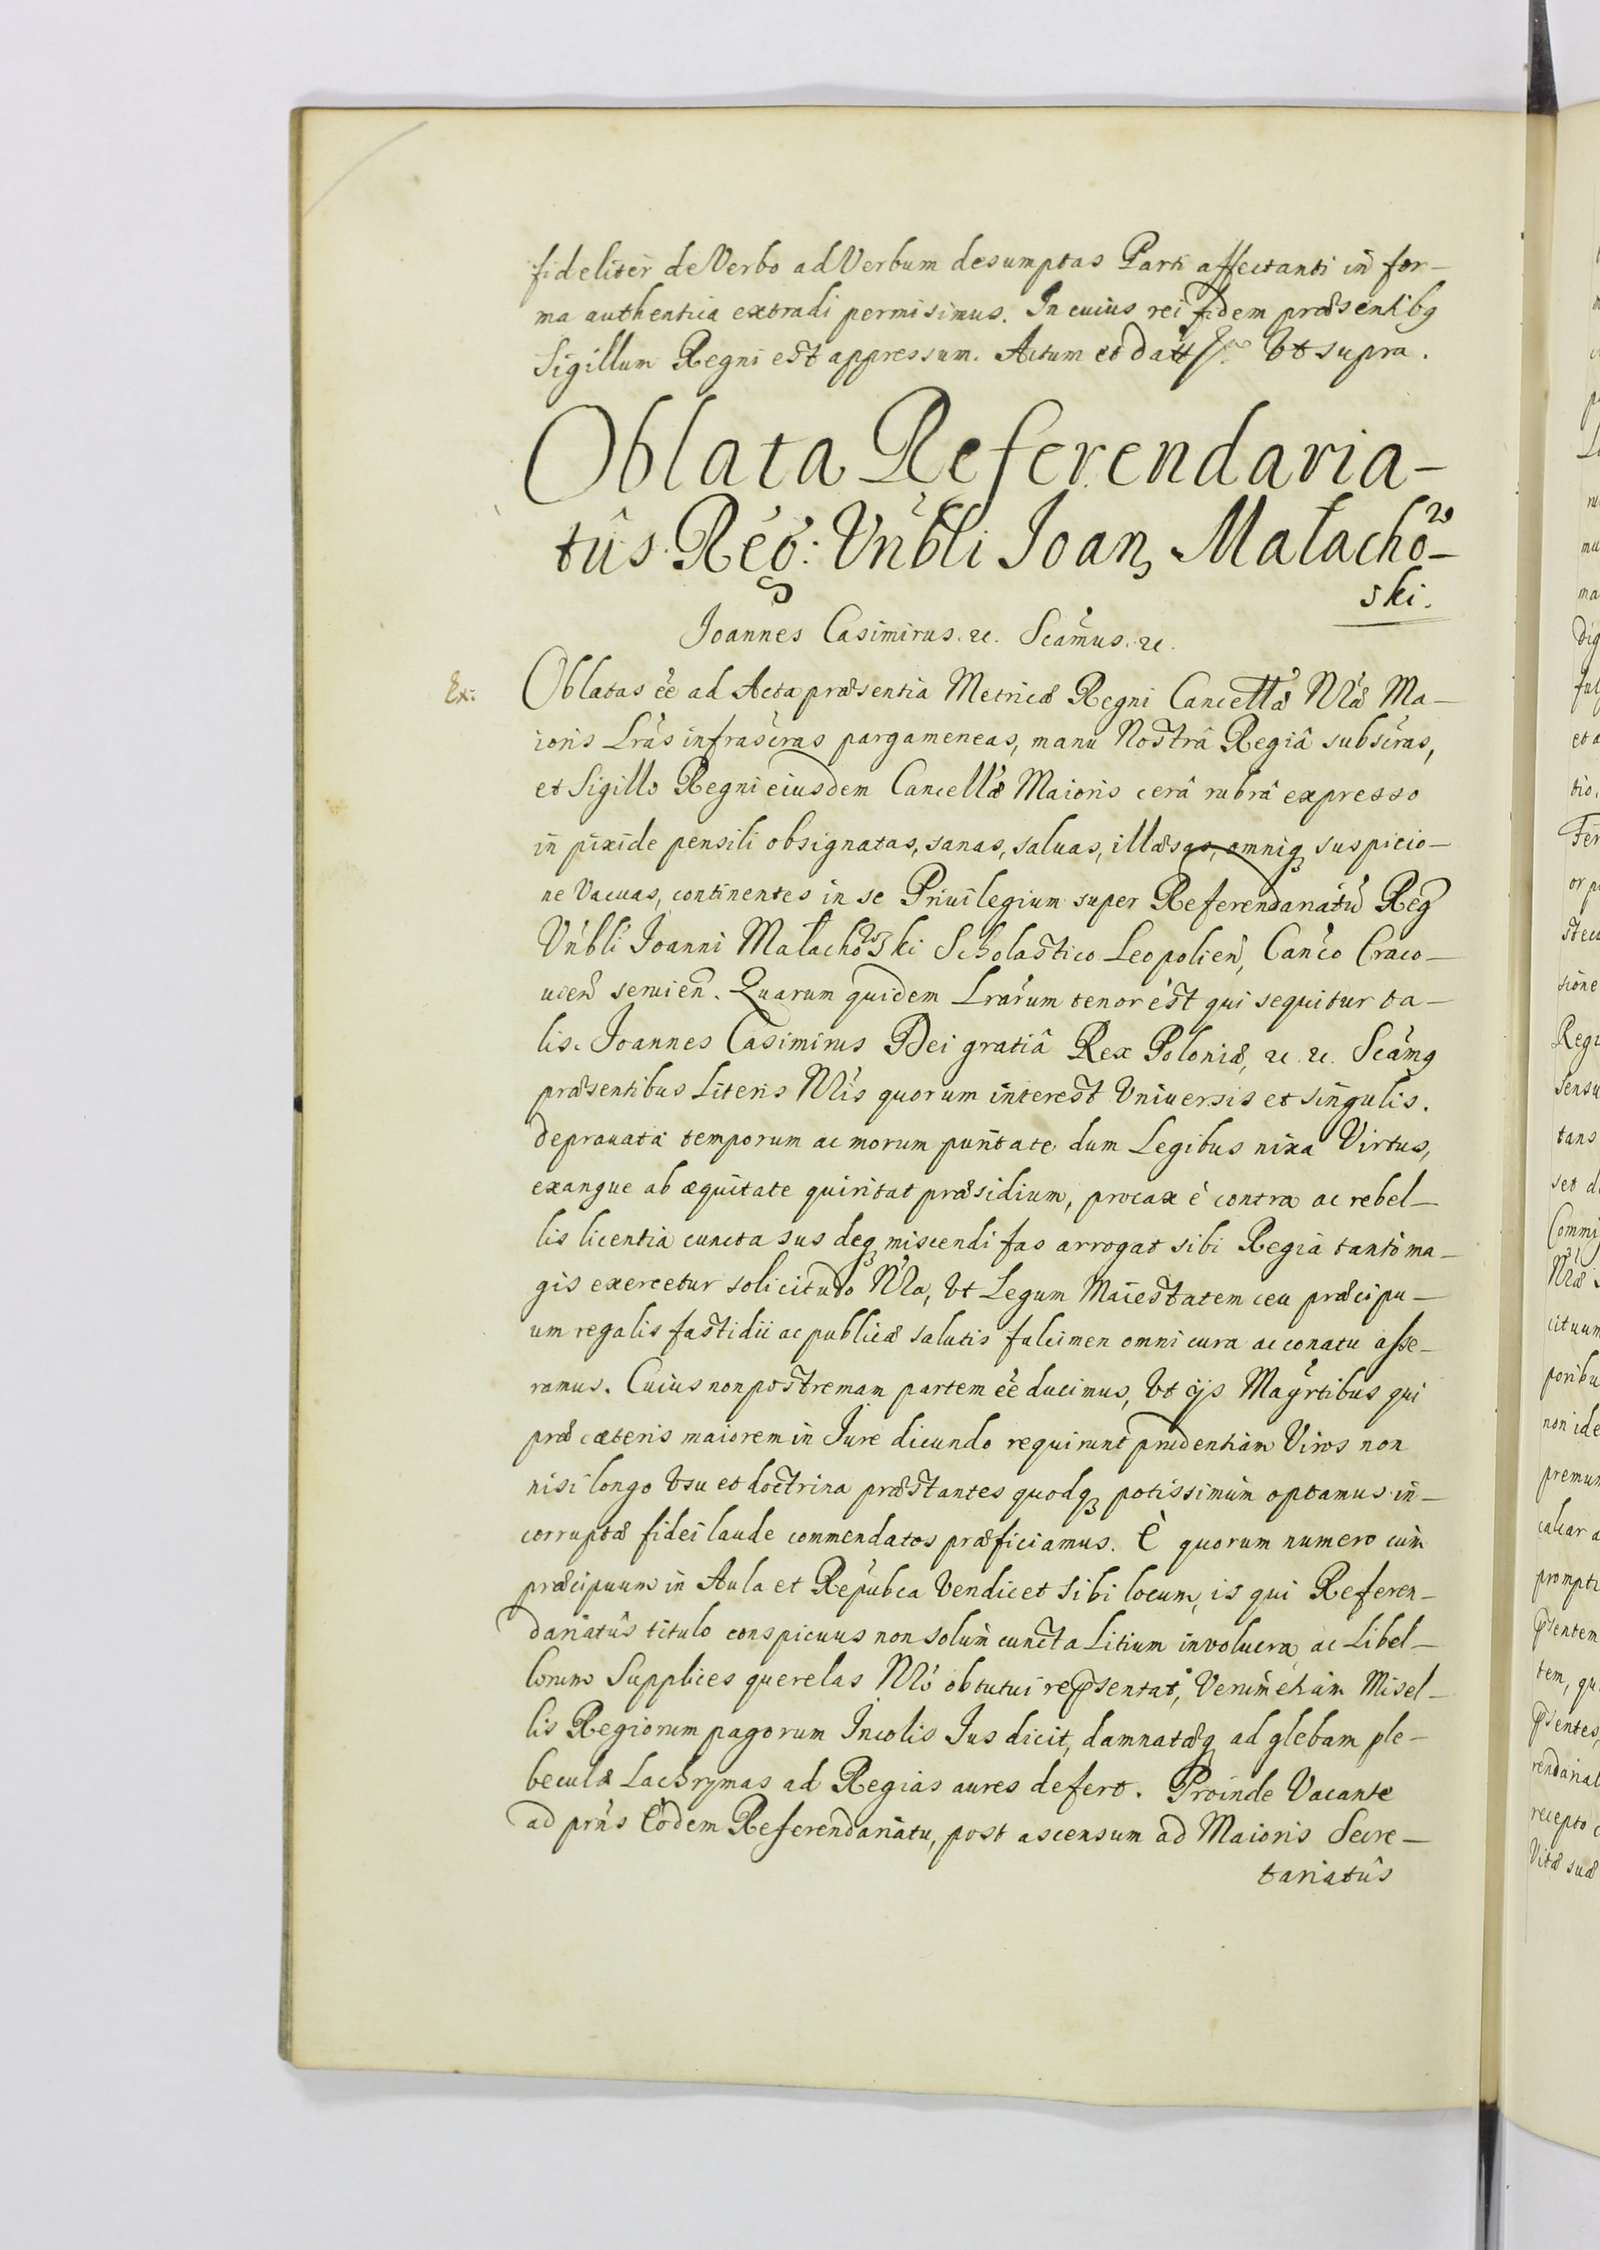 fideliter de Verbo ad Verbum desumptas Parti affectanti in for-
ma authentica extradi permisimus. In cuius rei fidem præsentibq
Sigillum Regni est appressum. Actum et datt Vt supra.
Oblata Referendaria-
tûs Reg: Vnbli Joan, Małachow-
ski.
Joannes Casimirus. &c. Scamus. &c.
Ex: Oblatas ee ad Acta præsentia Metricæ Regni Cancellæ Nræ Ma-
ioris Lras infrascras pargameneas, manu Nostrâ Regiâ subscras,
et Sigillo Regni eiusdem Cancellæ Maioris cerâ rubrâ expresso
in pixide pensili obsignatas, sanas, saluas, illæsas, omniq suspicio-
ne Vacuas, continentes in se Priuilegium super Referendariatu Reg
Vnbli Joanni Małachowski Scholastico Leopolien, Canco Craco-
uien seruien. Quarum quidem Lrarum tenor est qui sequitur ta-
lis. Joannes Casimirus Dei gratiâ Rex Poloniæ, &c. &c. Scamq
præsentibus Literis Nris quorum interest Vniuersis et singulis.
deprauata temporum ac morum puritate dum Legibus nixa Virtus,
exangue ab æquitate quiritat præsidium, procax è contra ac rebel-
lis licentia cuncta sus deq miscendi fas arrogat sibi Regia tantò ma-
gis exercetur solicitudo Nra, Vt Legum Maiestatem ceu præcipu-
um regalis fastidii ac publicæ salutis fulcimen omni cura ac conatu asse-
ramus. Cuius non postremam partem ee ducimus, Vt ijs Magrtibus qui
præ cæteris maiorem in Jure dicundo requirunt prudentiam Viros non
nisi longo Vsu et doctrina præstantes quodq potissimùm optamus in-
corruptæ fidei laude commendatos præficiamus. È quorum numero cùm
præcipuum in Aula et Repubca Vendicet sibi locum, is qui Referen-
dariatûs titulo conspicuus non solùm cuncta Litium involucra ac Libel-
lorum Supplices querelas Nro obtutui repsentat, Verùm etiam Misel-
lis Regiorum pagorum Incolis Jus dicit, damnatæq ad glebam ple-
beculæ Lachrymas ad Regias aures defert. Proinde Vacante
ad prns Eodem Referendariatu, post ascensum ad Maioris Secre-
tariatûs